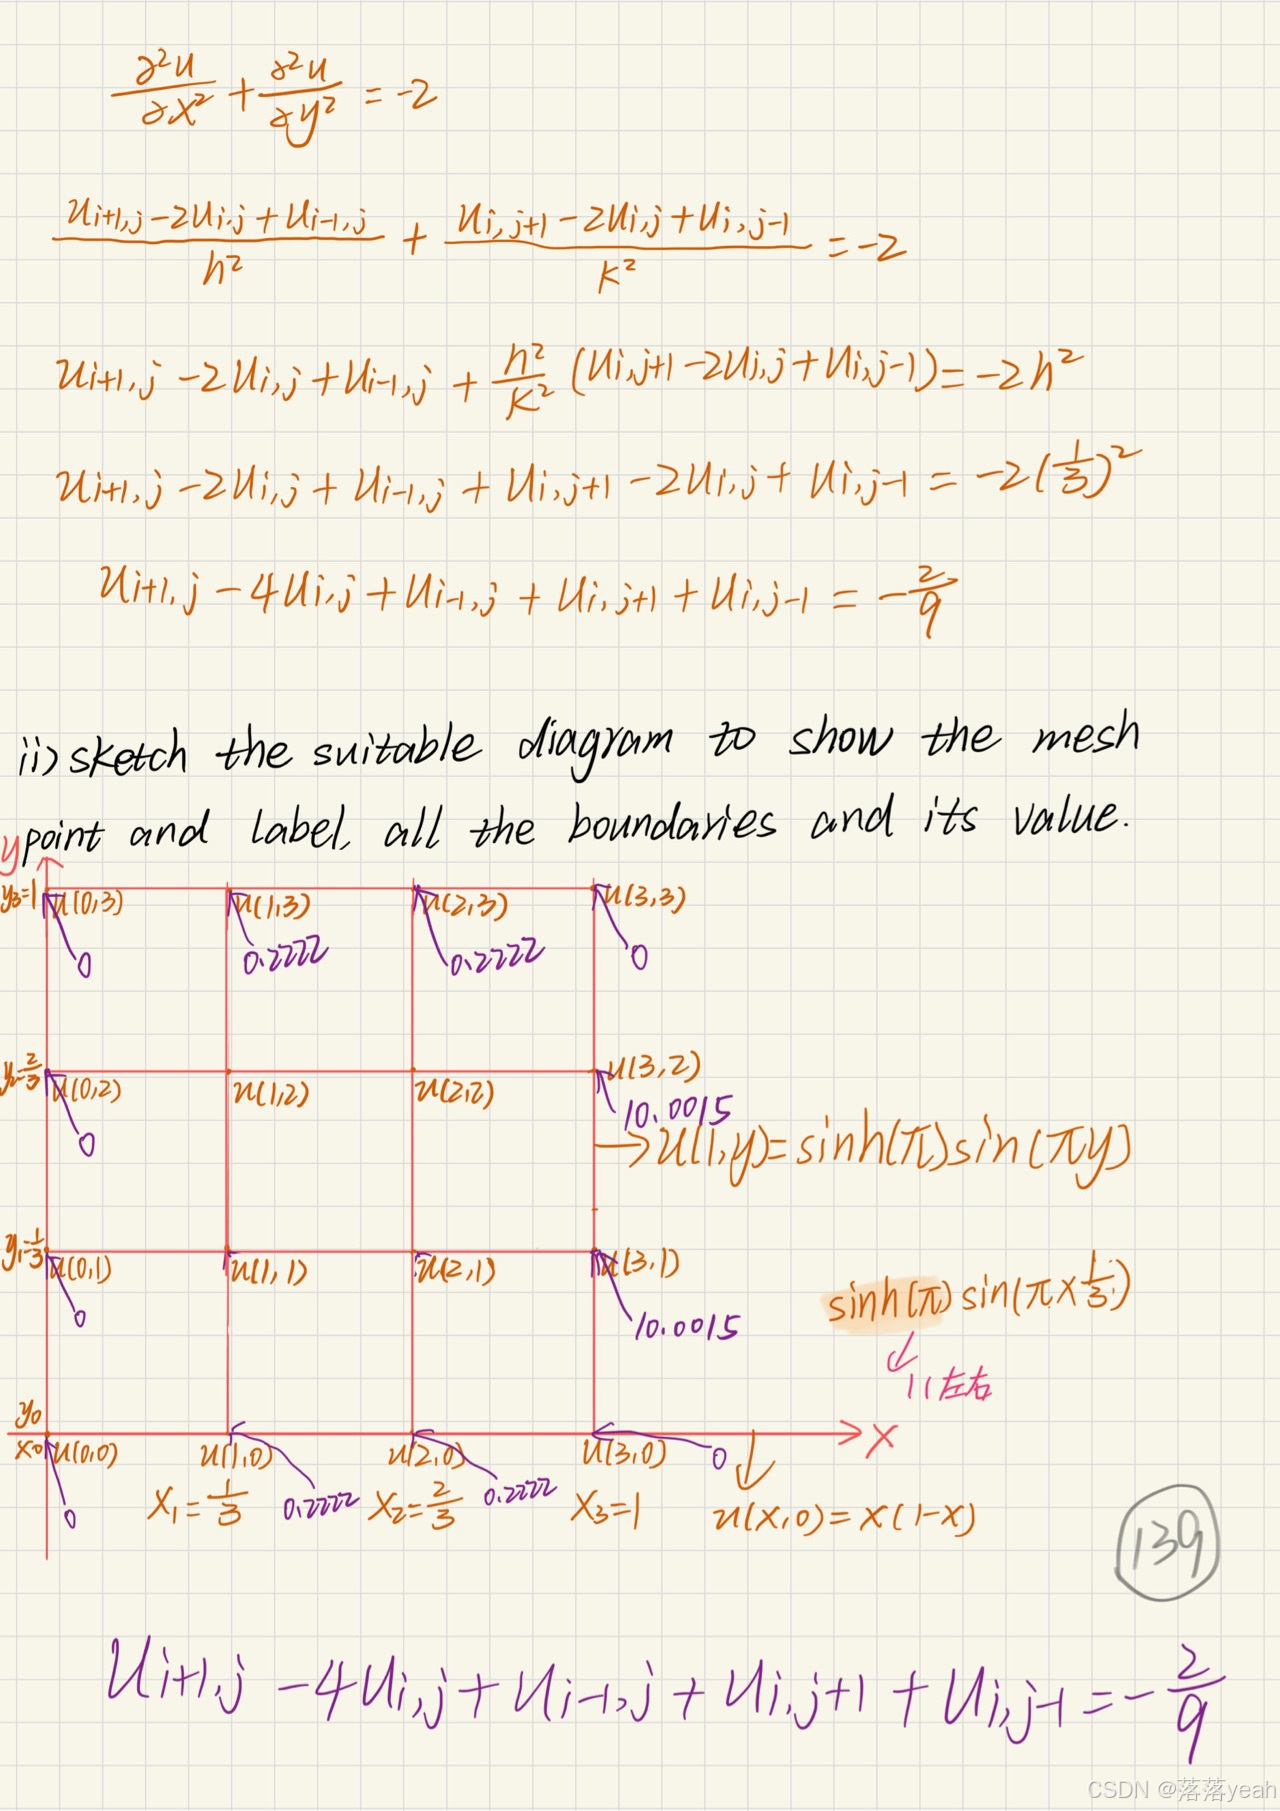 ∂²u/∂x² + ∂²u/∂y² = -2
(u_{i+1,j} - 2u_{i,j} + u_{i-1,j})/h² + (u_{i,j+1} - 2u_{i,j} + u_{i,j-1})/k² = -2
u_{i+1,j} - 2u_{i,j} + u_{i-1,j} + h²/k² (u_{i,j+1} - 2u_{i,j} + u_{i,j-1}) = -2h²
u_{i+1,j} - 2u_{i,j} + u_{i-1,j} + u_{i,j+1} - 2u_{i,j} + u_{i,j-1} = -2(1/3)²
u_{i+1,j} - 4u_{i,j} + u_{i-1,j} + u_{i,j+1} + u_{i,j-1} = -2/9
ii) sketch the suitable diagram to show the mesh
point and label, all the boundaries and its value.
y
y₃=1 u(0,3) u(1,3) u(2,3) u(3,3)
0 0.2222 0.2222 0
y₂=2/3 u(0,2) u(1,2) u(2,2) u(3,2)
0 10.0015
→ u(1,y) = sinh(π) sin(πy)
y₁=1/3 u(0,1) u(1,1) u(2,1) u(3,1)
0 10.0015
sinh(π) sin(π × 1/3)
11左右
y₀
x₀ u(0,0) u(1,0) u(2,0) u(3,0) 0 x
0 x₁=1/3 0.2222 x₂=2/3 0.2222 x₃=1 u(x,0) = x(1-x)
139
u_{i+1,j} - 4u_{i,j} + u_{i-1,j} + u_{i,j+1} + u_{i,j-1} = -2/9
CSDN @落落yeah